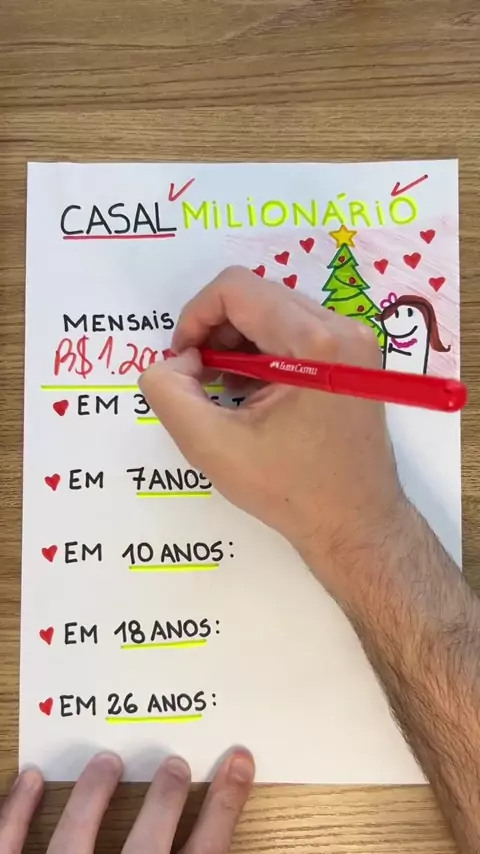 CASAL MILIONÁRIO
MENSAIS
R$1.20
EM 3
EM 7 ANOS
EM 10 ANOS:
EM 18 ANOS:
EM 26 ANOS:
FABER CASTELL